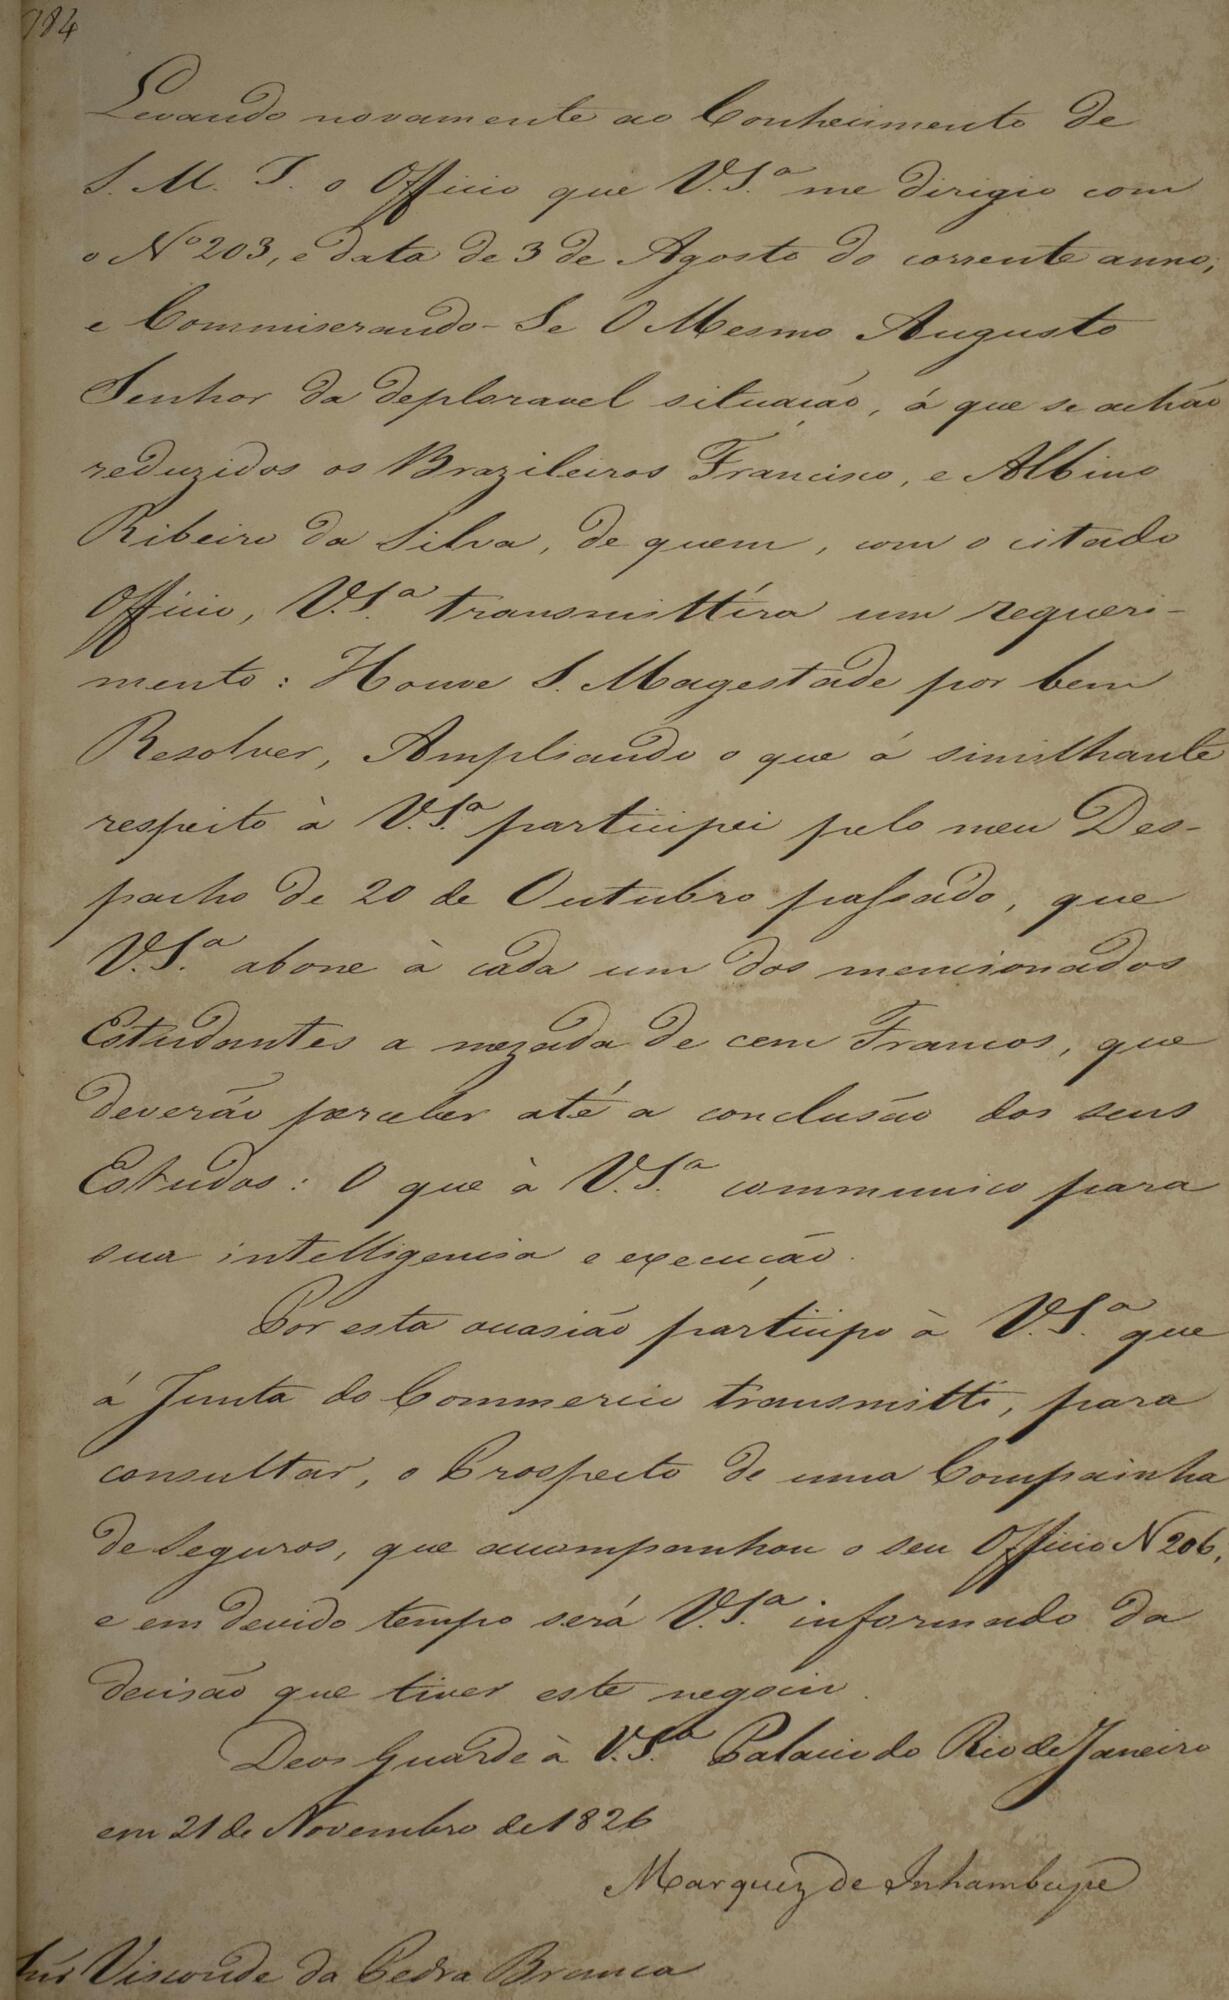 984
Levando novamente ao Conhecimento de
S. M. I. o Officio que V.S.ª me dirigio com
o Nº 203, e data de 3 de Agosto do corrente anno,
e Commiserando-Se O Mesmo Augusto
Senhor da deploravel situação, á que se achão
reduzidos os Brazileiros Francisco, e Albino
Ribeiro da Silva, de quem, com o citado
Officio, V.S.ª transmittíra um requeri-
mento: Houve S. Magestade por bem
Resolver, Ampliando o que á similhante
respeito à V.S.ª participei pelo meu Des-
pacho de 20 de Outubro passado, que
V.S.ª abone à cada um dos mencionados
Estudantes a mezada de cem Francos, que
deverão perceber até a conclusão dos seus
Estudos: O que à V.S.ª communico para
sua intelligencia e execução.
Por esta occasião participo à V.S.ª que
á Junta do Commercio transmitti, para
consultar, o Prospecto de uma Compainha
de Seguros, que acompanhou o seu Officio N 206,
e em devido tempo será V.S.ª informado da
decisão que tiver este negocio.
Deos Guarde à V.S.ª Palacio do Rio de Janeiro
em 21 de Novembro de 1826
Marquez de Inhambupe
Visconde da Pedra Branca